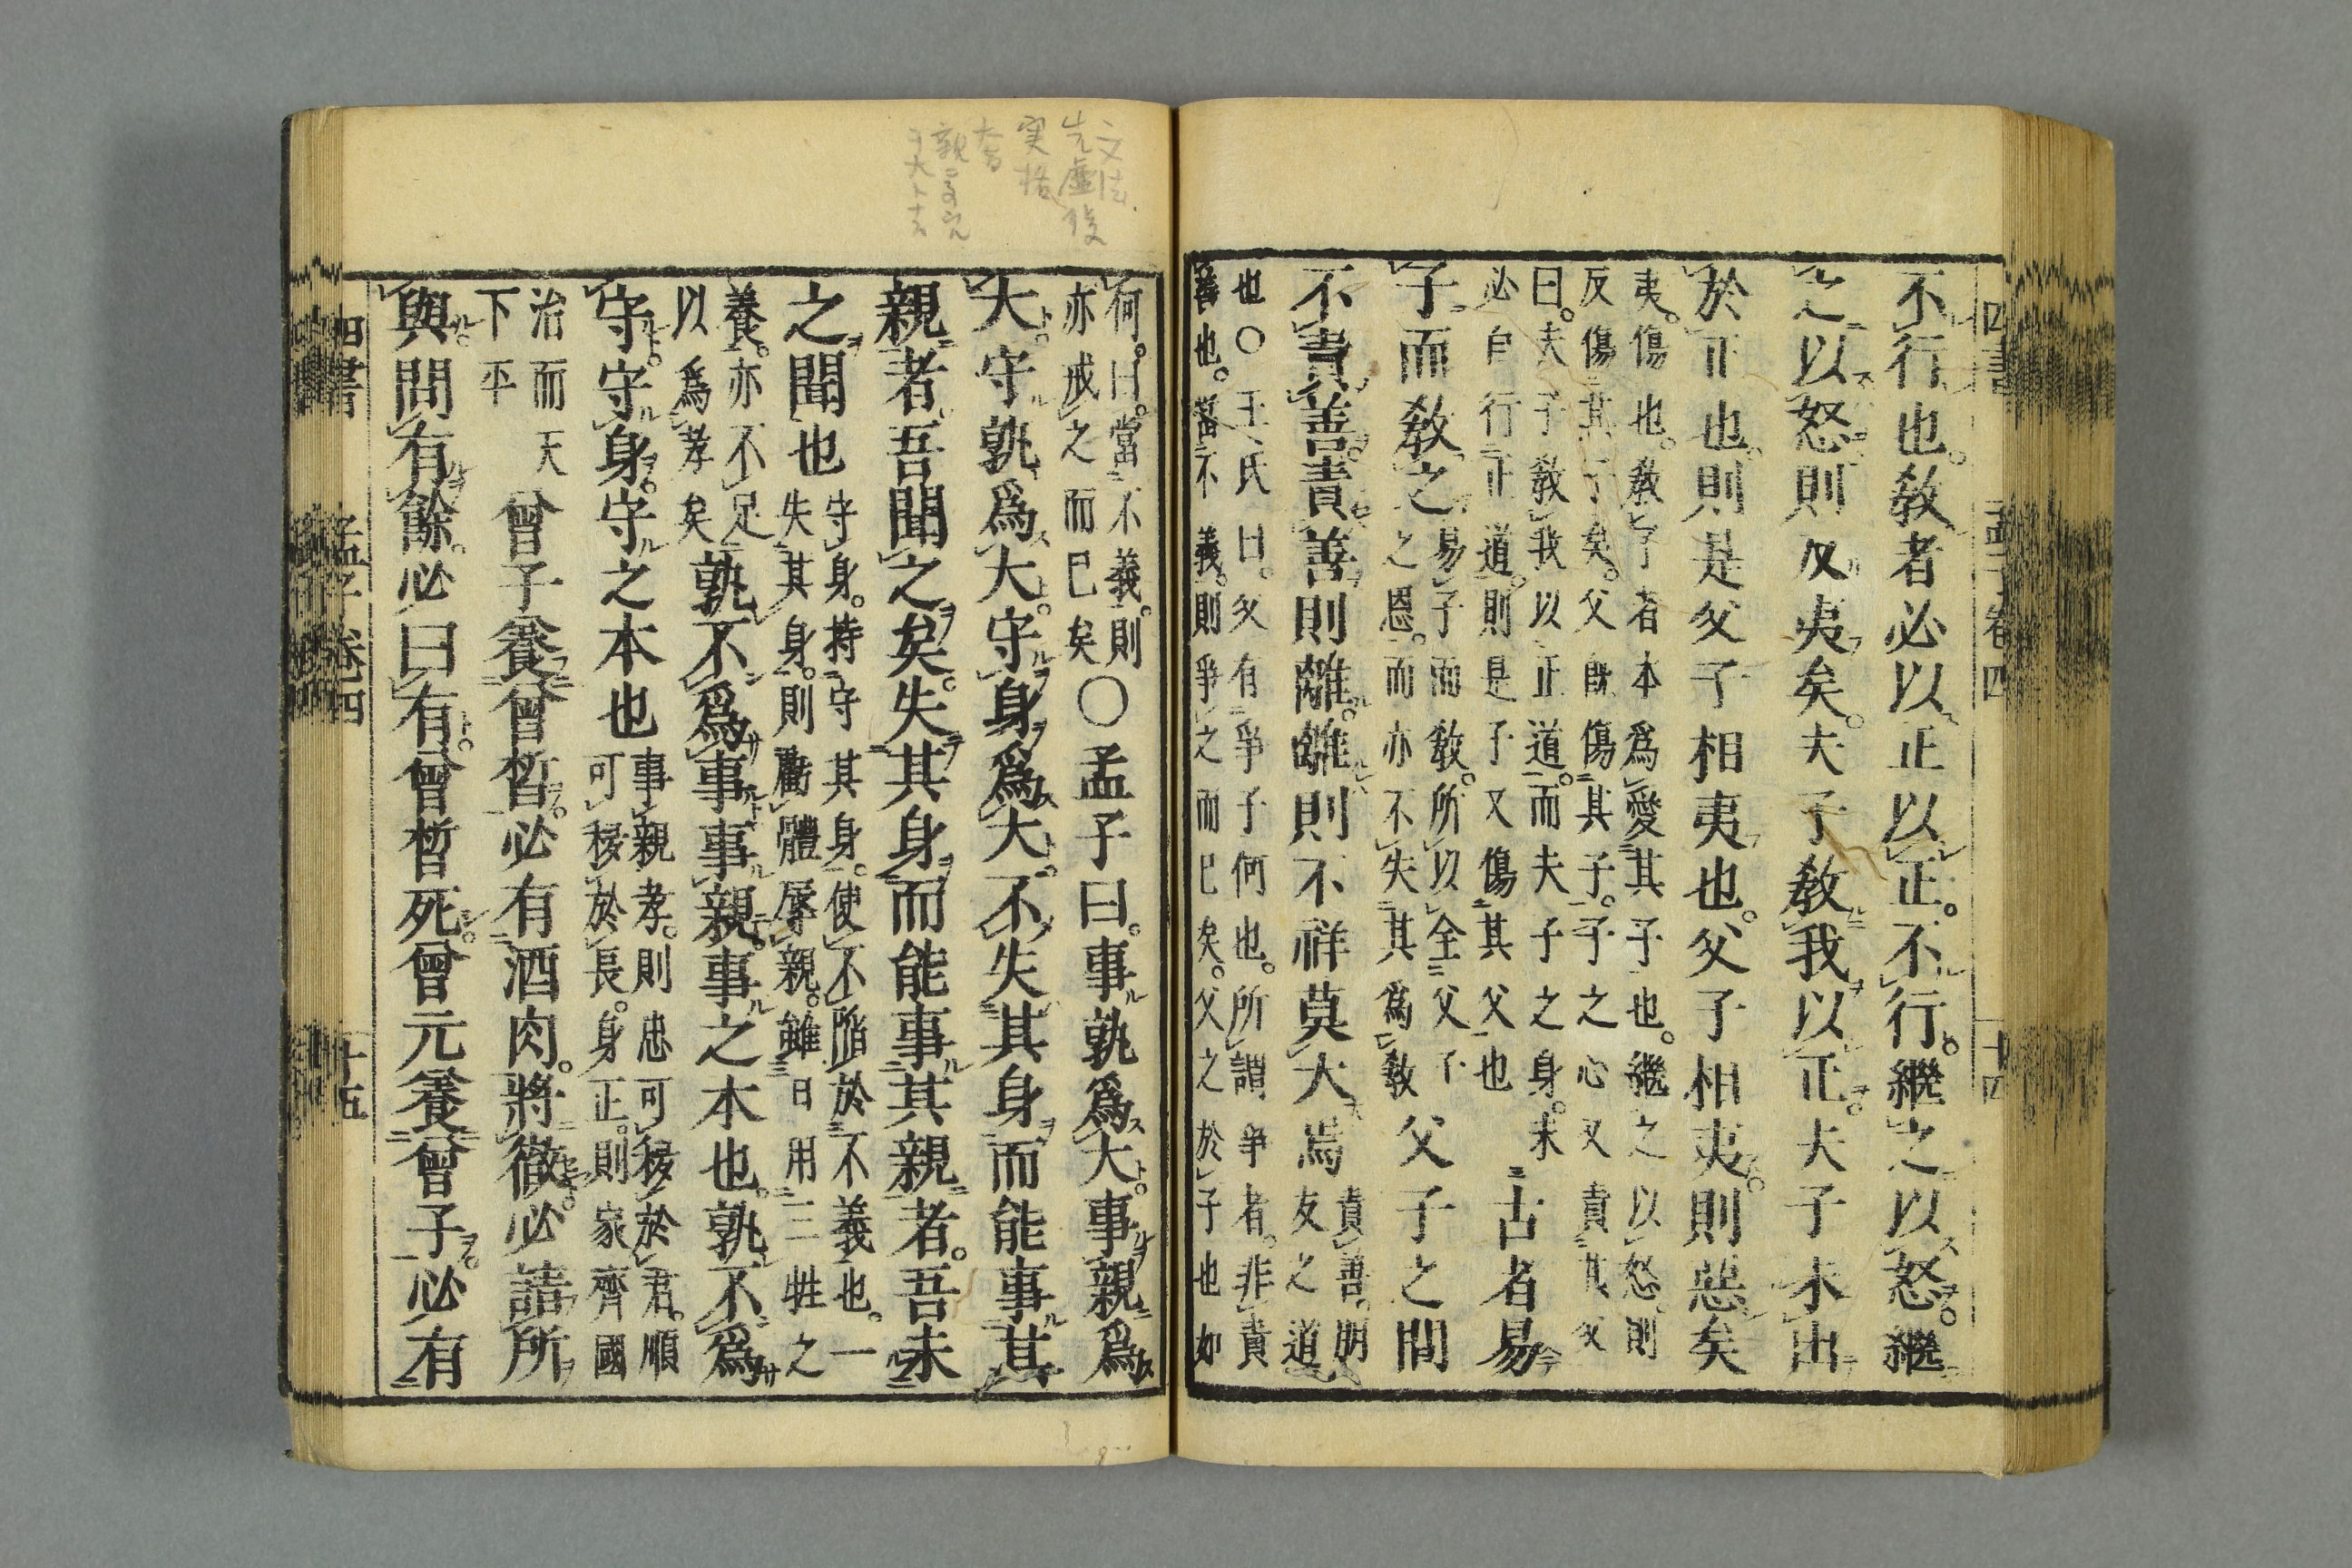 四書 孟子卷四 十四
不行也。敎者必以正以正。不行。繼之以怒。繼
之以怒則反夷矣。夫子敎我以正。夫子未出
於正也。則是父子相夷也。父子相夷。則惡矣
夷。傷也。敎子者本爲愛其子也。繼之以怒則
反傷其子矣。父旣傷其子。子之心又責其父
曰。夫子敎我以正道。而夫子之身。未
必自行正道。則是子又傷其父也
古者易
子而敎之
易子而敎。所以全父子
之恩。而亦不失其爲敎
父子之間
不責善。責善則離。離則不祥莫大焉
責善。朋
友之道
也〇王氏曰。父有爭子何也。所謂爭者。非責
善也。當不義。則爭之而已矣。父之於子也如
何。曰。當不義。則
亦戒之而已矣
〇孟子曰。事孰爲大。事親爲
大。守孰爲大。守身爲大。不失其身而能事其
親者。吾聞之矣。失其身而能事其親者。吾未
之聞也
守身。持守其身。使不陷於不義也。一
失其身。則虧體辱親。雖日用三牲之
養。亦不足
以爲孝矣
孰不爲事事親。事之本也。孰不爲
守守身。守之本也
事親孝。則忠可移於君。順
可移於長。身正。則家齊國
治而天
下平
曾子養曾晳。必有酒肉。將徹。必請所
與問有餘。必曰有。曾晳死。曾元養曾子。必有
四書 孟子卷四 十五
文法
先虛後
実格